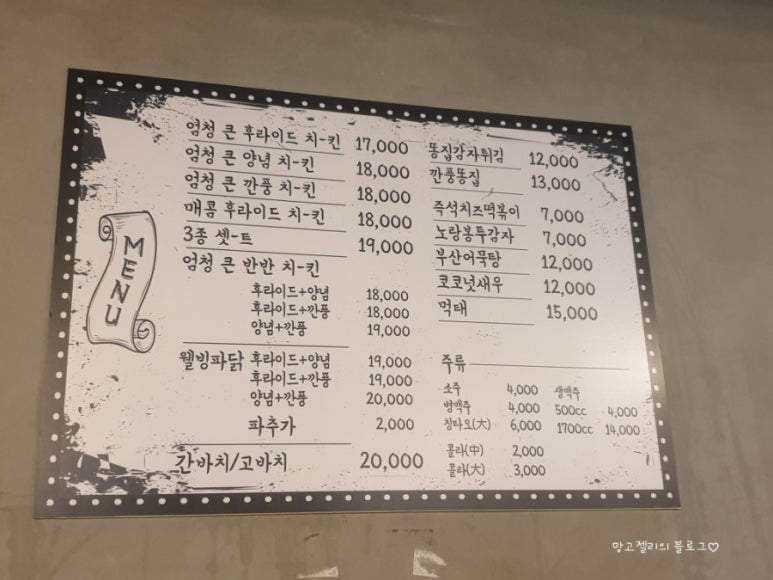 MENU
엄청 큰 후라이드 치-킨 17,000
엄청 큰 양념 치-킨 18,000
엄청 큰 깐풍 치-킨 18,000
매콤 후라이드 치-킨 18,000
3종 셋-트 19,000
엄청 큰 반반 치-킨
후라이드+양념 18,000
후라이드+깐풍 18,000
양념+깐풍 19,000
웰빙파닭 후라이드+양념 19,000
후라이드+깐풍 19,000
양념+깐풍 20,000
파추가 2,000
간바치/고바치 20,000
똥집감자튀김 12,000
깐풍똥집 13,000
즉석치즈떡볶이 7,000
노랑봉투감자 7,000
부산어묵탕 12,000
코코넛새우 12,000
먹태 15,000
주류
소주 4,000
병맥주 4,000
칭타오(大) 6,000
생맥주
500cc 4,000
1700cc 14,000
콜라(中) 2,000
콜라(大) 3,000
망고젤리의 블로그♡